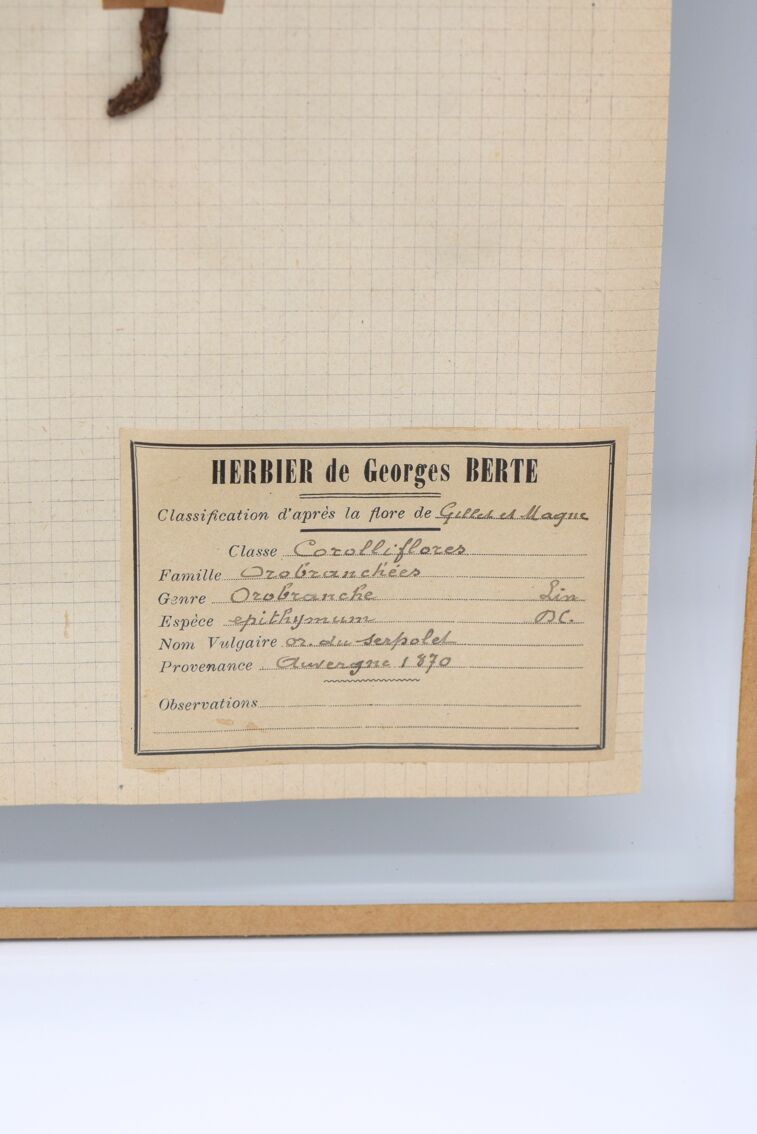 HERBIER de Georges BERTE
Classification d'après la flore de Gillet et Magne
Classe Corolliflores
Famille Orobranchées
Genre Orobranche Lin
Espèce epithymum DC.
Nom Vulgaire or. du serpolet
Provenance Auvergne 1870
Observations